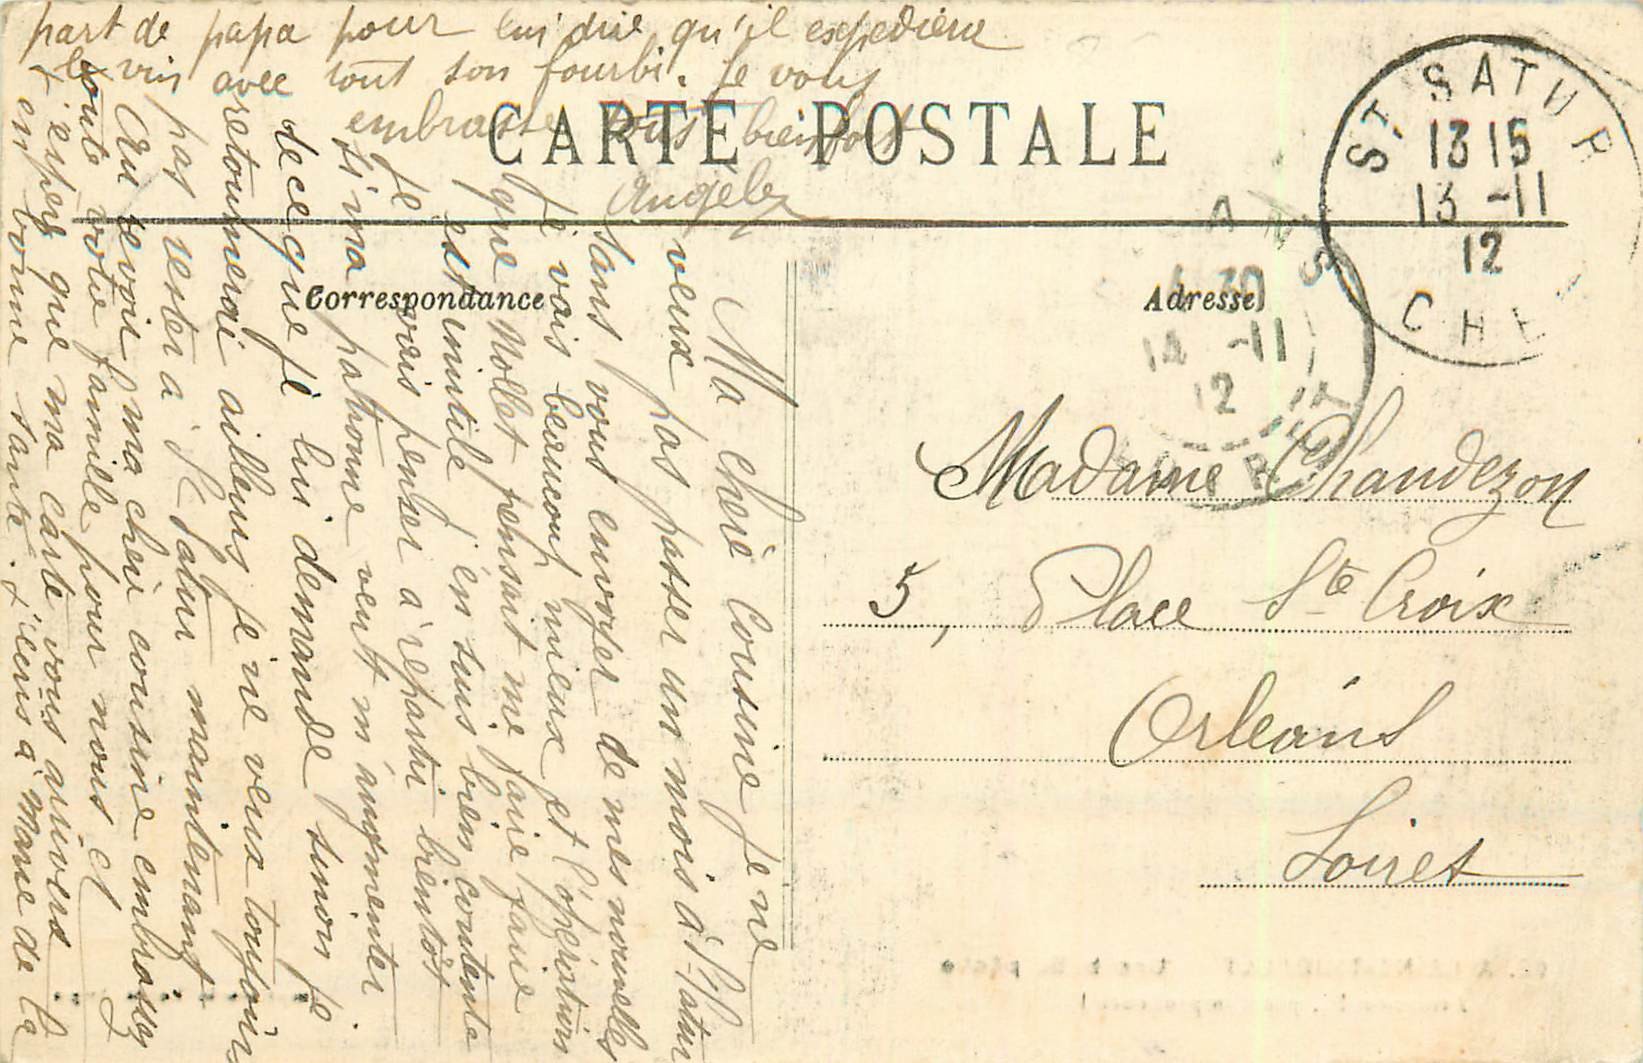 CARTE POSTALE
Correspondance
Adresse
ST SATUR
13 15
13 -11
12
CHE
ANS
30
14 -11
12
RET
Madame Chandezon
5, Place Ste Croix
Orleans
Loiret
Ma cheré Cousine je ne
veux pas passer un mois à St Satur
sans vous envoyer de mes nouvelles
Je vais beaucoup mieux et l'opération
que Mollet pensait me faire faire
est inutile j'en suis bien contente
Je vais penser à repartir bientôt
si ma patronne veut m'augmenter
de ce que je lui demande sinon je
retournerai ailleurs je ne veux toujours
pas rester à St Satur maintenant
Au revoir ma cheré cousine embrassez
toute votre famille pour nous et
j'espère que ma carte vous arrivera
en bonne santé. J'écris à Marie de la
part de papa pour lui dire qu'il expediera
le vin avec tout son fourbi. Je vous
embrasse tous bien fort
Angèle